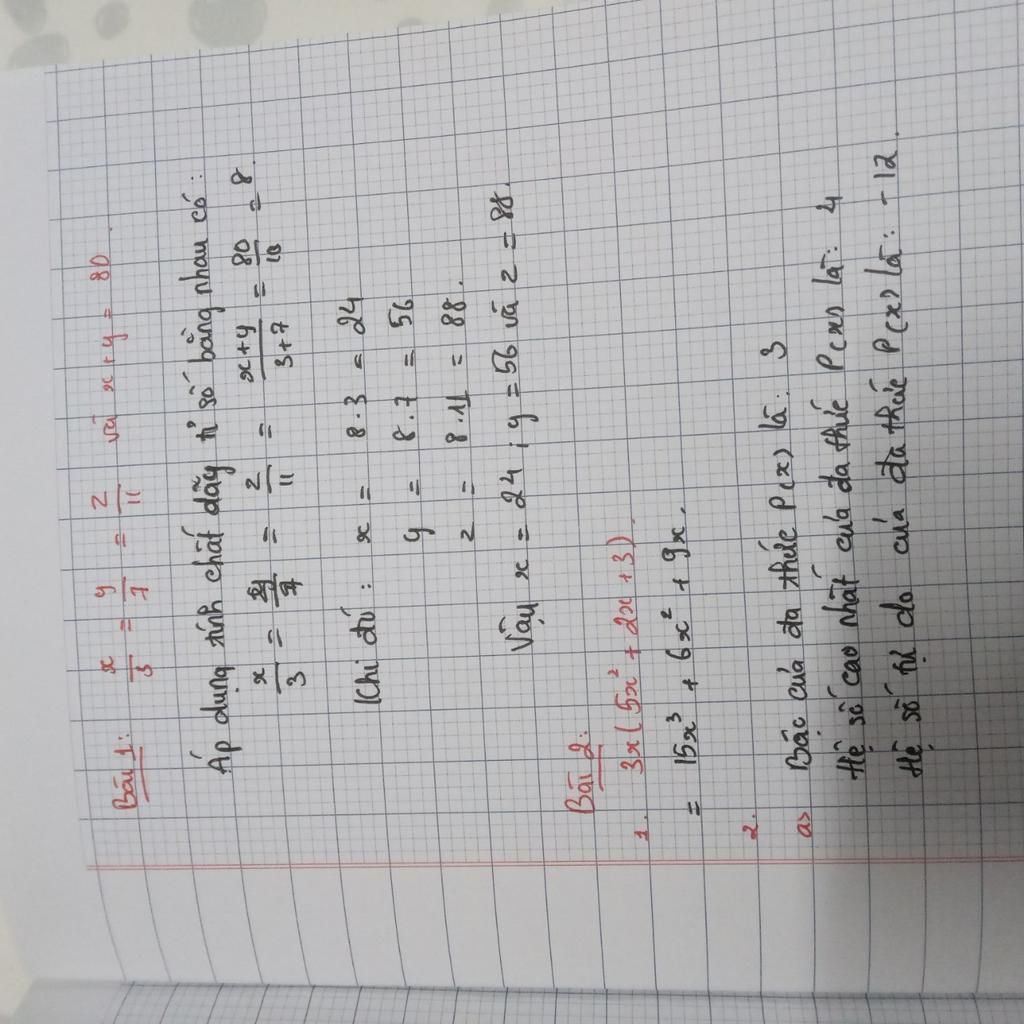 Bài 1: x/3 = y/7 = z/11 và x + y = 80.
Áp dụng tính chất dãy tỉ số bằng nhau có:
x/3 = y/7 = z/11 = x+y/3+7 = 80/10 = 8.
Khi đó: x = 8.3 = 24
y = 8.7 = 56
z = 8.11 = 88.
Vậy x = 24; y = 56 và z = 88.
Bài 2:
1. 3x(5x² + 2x + 3).
= 15x³ + 6x² + 9x.
2.
a) Bậc của đa thức P(x) là: 3
Hệ số cao nhất của đa thức P(x) là: 4
Hệ số tự do của đa thức P(x) là: -12.